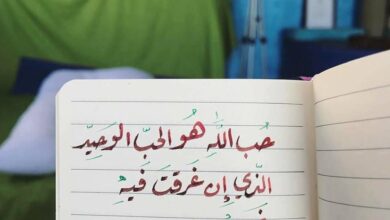 حُب اللَّهِ هُو الحبّ الوَحِيِّد
الَّذِي إن غَرقتَ فَيهِ